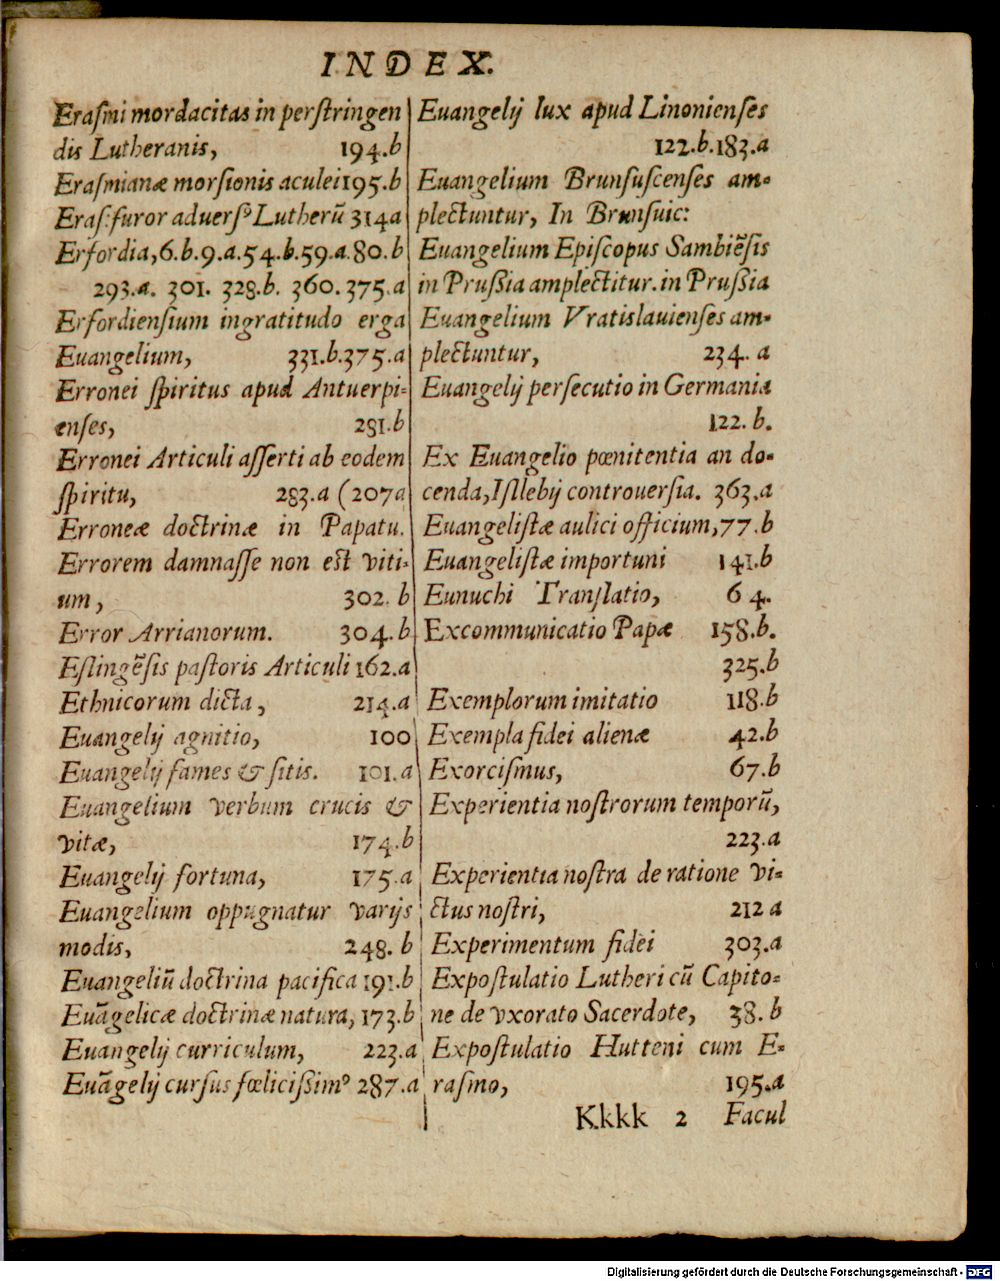 INDEX.
Eraſmi mordacitas in perſtringen
dis Lutheranis, 194.b
Eraſmianæ morſionis aculei 195.b
Eraſ: furor aduerſꝰ Lutherū 314a
Erfordia, 6.b.9.a.54.b.59.a.80.b
293.a. 301. 328.b. 360. 375.a
Erfordienſium ingratitudo erga
Euangelium, 331.b.375.a
Erronei ſpiritus apud Antuerpi-
enſes, 281.b
Erronei Articuli aſſerti ab eodem
ſpiritu, 283.a (207a
Erroneæ doctrinæ in Papatu.
Errorem damnaſſe non eſt viti-
um, 302. b
Error Arrianorum. 304.b
Eſlingēſis paſtoris Articuli 162.a
Ethnicorum dicta, 214.a
Euangelij agnitio, 100
Euangelij fames & ſitis. 101.a
Euangelium verbum crucis &
vitæ, 174.b
Euangelij fortuna, 175.a
Euangelium oppugnatur varijs
modis, 248. b
Euangeliū doctrina pacifica 191.b
Euāgelicæ doctrinæ natura, 173.b
Euangelij curriculum, 223.a
Euāgelij curſus fœliciſſimꝰ 287.a
Euangelij lux apud Linonienſes
122.b.183.a
Euangelium Brunſuſcenſes am-
plectuntur, In Brunſuic:
Euangelium Epiſcopus Sambiēſis
in Pruſſia amplectitur. in Pruſſia
Euangelium Vratislauienſes am-
plectuntur, 234. a
Euangelij perſecutio in Germania
122. b.
Ex Euangelio pœnitentia an do-
cenda, Iſllebij controuerſia. 363.a
Euangeliſtæ aulici officium, 77.b
Euangeliſtæ importuni 141.b
Eunuchi Tranſlatio, 64.
Excommunicatio Papæ 158.b.
325.b
Exemplorum imitatio 118.b
Exempla fidei alienæ 42.b
Exorciſmus, 67.b
Experientia noſtrorum temporū,
223.a
Experientia noſtra de ratione vi-
ctus noſtri, 212 a
Experimentum fidei 303.a
Expoſtulatio Lutheri cū Capito-
ne de vxorato Sacerdote, 38. b
Expoſtulatio Hutteni cum E-
raſmo, 195.a
Kkkk 2 Facul
Digitalisierung gefördert durch die Deutsche Forschungsgemeinschaft - DFG